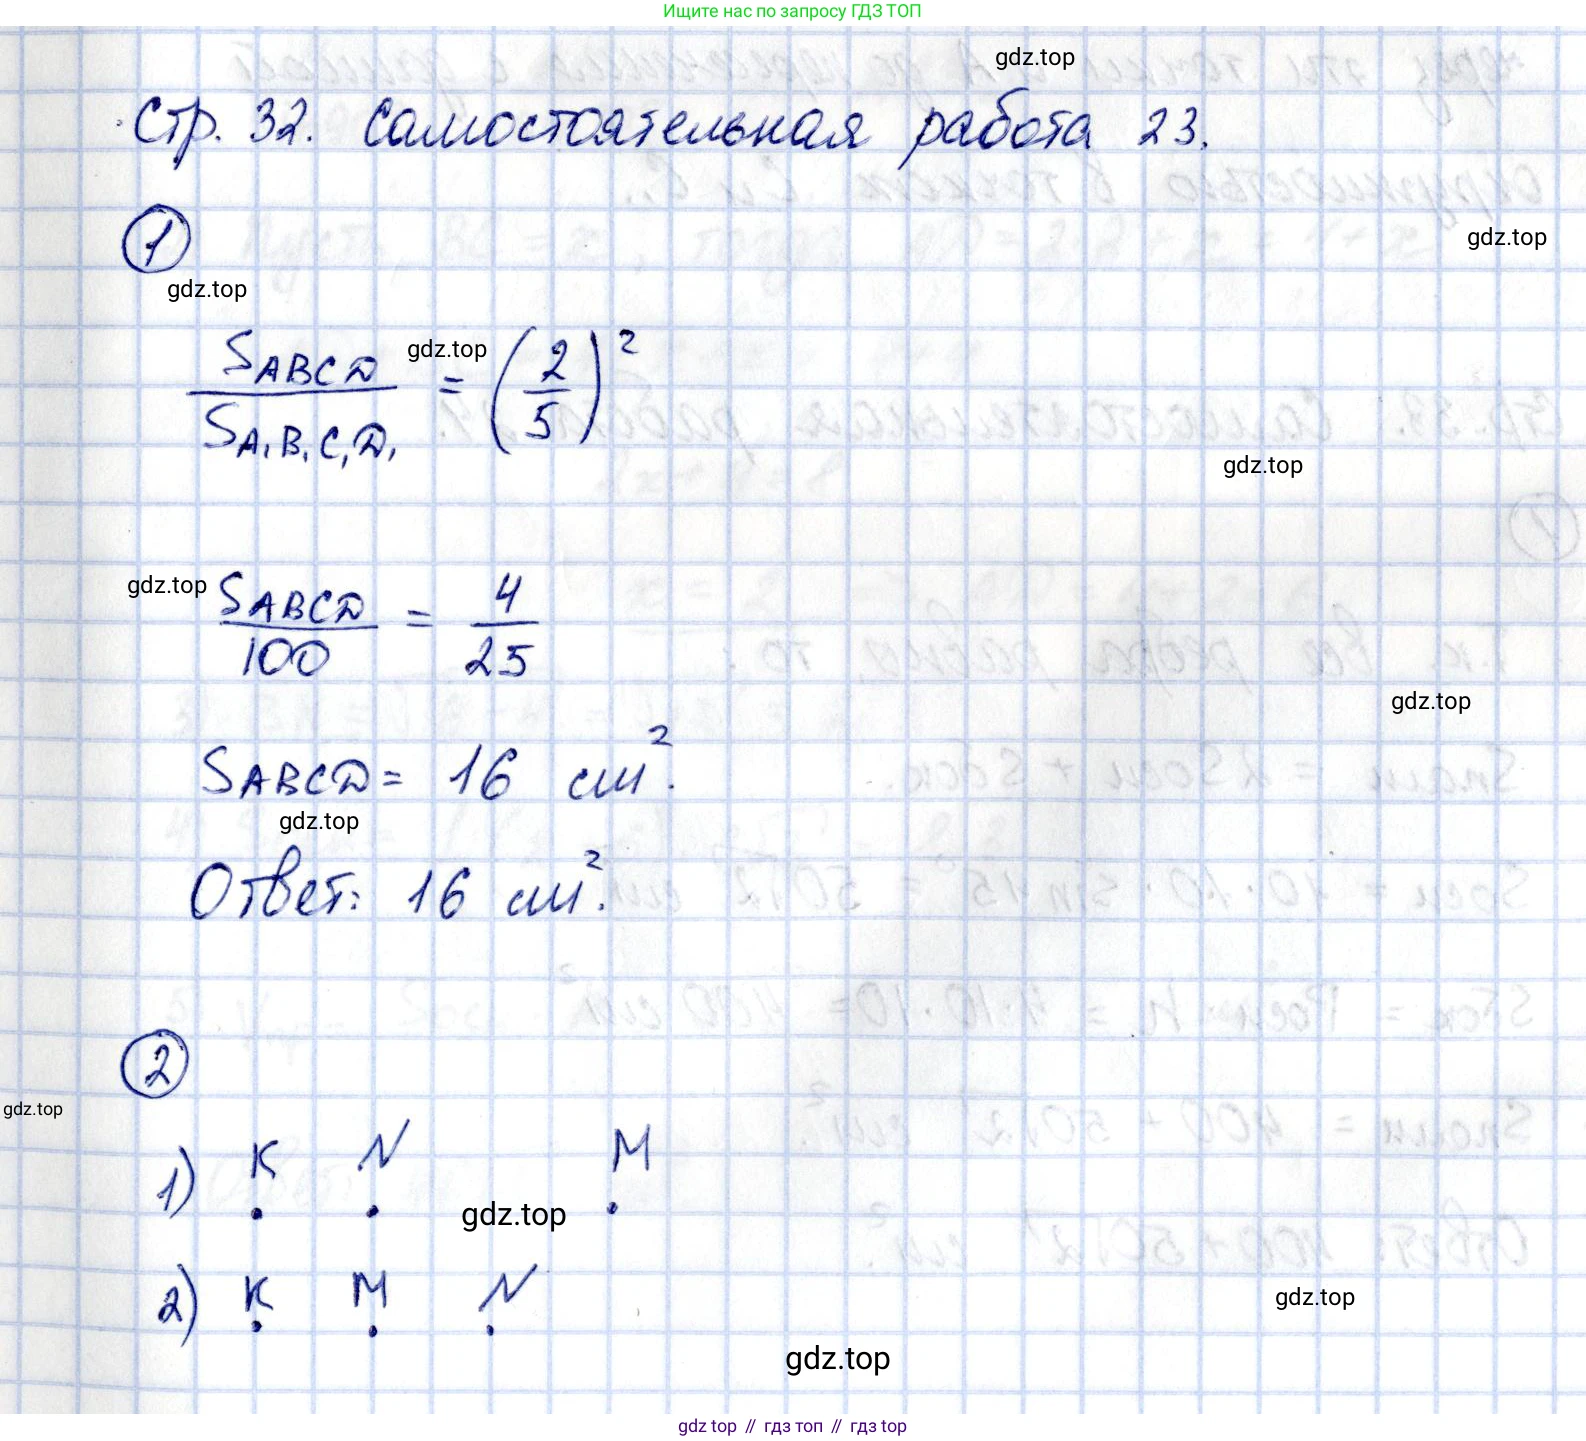 Ищите нас по запросу ГДЗ ТОП
gdz.top
Стр. 32. Самостоятельная работа 23.
gdz.top
1
gdz.top
S_ABCD / S_A₁B₁C₁D₁ = (2/5)²
gdz.top
gdz.top
gdz.top
S_ABCD / 100 = 4/25
gdz.top
S_ABCD = 16 см².
gdz.top
Ответ: 16 см².
2
gdz.top
1) K N M
gdz.top
2) K M N
gdz.top
gdz.top
gdz top // гдз топ // гдз top